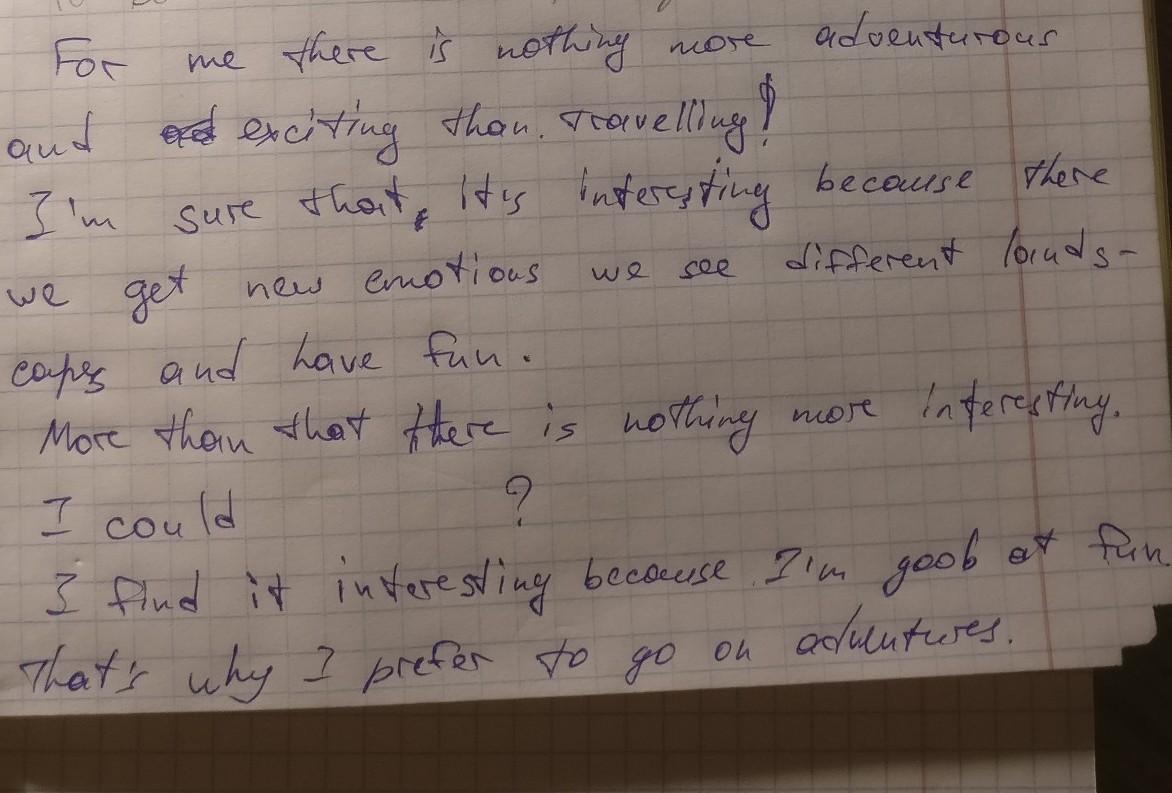 For me there is nothing more adventurous
and exciting than. Travelling!
I'm sure that, it's interesting because there
we get new emotions we see different lands-
capes and have fun.
More than that there is nothing more interesting.
I could ?
I find it interesting because I'm goob at fun.
That's why I prefer to go on adventures.